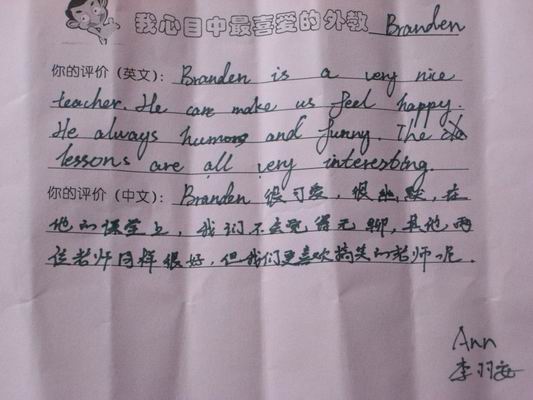 我心目中最喜爱的外教 Branden
你的评价（英文）: Branden is a very nice
teacher. He can make us feel happy.
He always humorg and funny. The
lessons are all very interesting.
你的评价（中文）: Branden 很可爱，很幽默，在
他的课堂上，我们不会觉得无聊，其他两
位老师同样很好，但我们更喜欢搞笑的老师呢.
Ann
李羽安